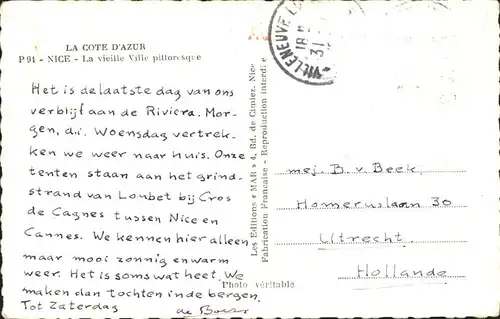 LA COTE D'AZUR
P 94 - NICE - La vieille Ville pittoresque
Het is de laatste dag van ons
verblijf aan de Riviera. Mor-
gen, d.i. Woensdag vertrek-
ken we weer naar huis. Onze
tenten staan aan het grind-
strand van Loubet bij Cros
de Cagnes tussen Nice en
Cannes. We kennen hier alleen
maar mooi zonnig en warm
weer. Het is soms wat heet. We
maken dan tochten in de bergen.
Tot Zaterdag
Photo véritable
Les Editions « MAR » 4, Bd. de Cimiez, Nice
Fabrication Française - Reproduction interdite
VILLENEUVE LO
18
31
mej. B. v. Beek,
Homeruslaan 30
Utrecht.
Hollande